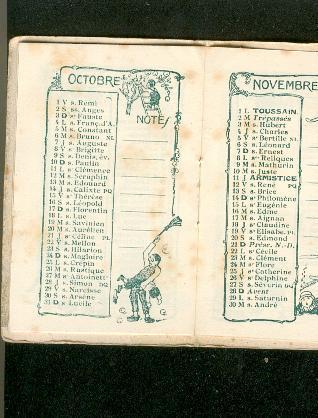 OCTOBRE
NOTES
1 V s. Remi
2 S ss. Anges
3 D s' Fauste
4 L s. Franç. d'A.
5 M s. Constant
6 M s. Bruno NL
7 J s. Auguste
8 V s' Brigitte
9 S s. Denis, év.
10 D s. Paulin
11 L s' Clémence
12 M s. Séraphin
13 M s. Edouard
14 J s. Calixte PQ
15 V s' Thérèse
16 S s. Léopold
17 D s. Florentin
18 L s. Luc
19 M s. Savinien
20 M s. Aurélien
21 J s' Céline PL
22 V s. Mellon
23 S s. Hilarion
24 D s. Magloire
25 L s. Crépin
26 M s. Rustique
27 M s' Antoinett'
28 J s. Simon DQ
29 V s. Narcisse
30 S s. Arsène
31 D s' Lucile
NOVEMBRE
1 L TOUSSAIN.
2 M Trépassés
3 M s. Hubert
4 J s. Charles
5 V s' Bertille NL
6 S s. Léonard
7 D s. Ernest
8 L s' Reliques
9 M s. Mathurin
10 M s. Juste
11 J ARMISTICE
12 V s. René PQ
13 S s. Brice
14 D s' Philomène
15 L s' Eugénie
16 M s. Edme
17 M s. Aignan
18 J s' Claudine
19 V s' Elisabe. PL
20 S s. Edmond
21 D Prés. N.-D.
22 L s' Cécile
23 M s. Clément
24 M s' Flore
25 J s' Catherine
26 V s' Delphine
27 S s. Séverin DQ
28 D Avent
29 L s. Saturnin
30 M s. André